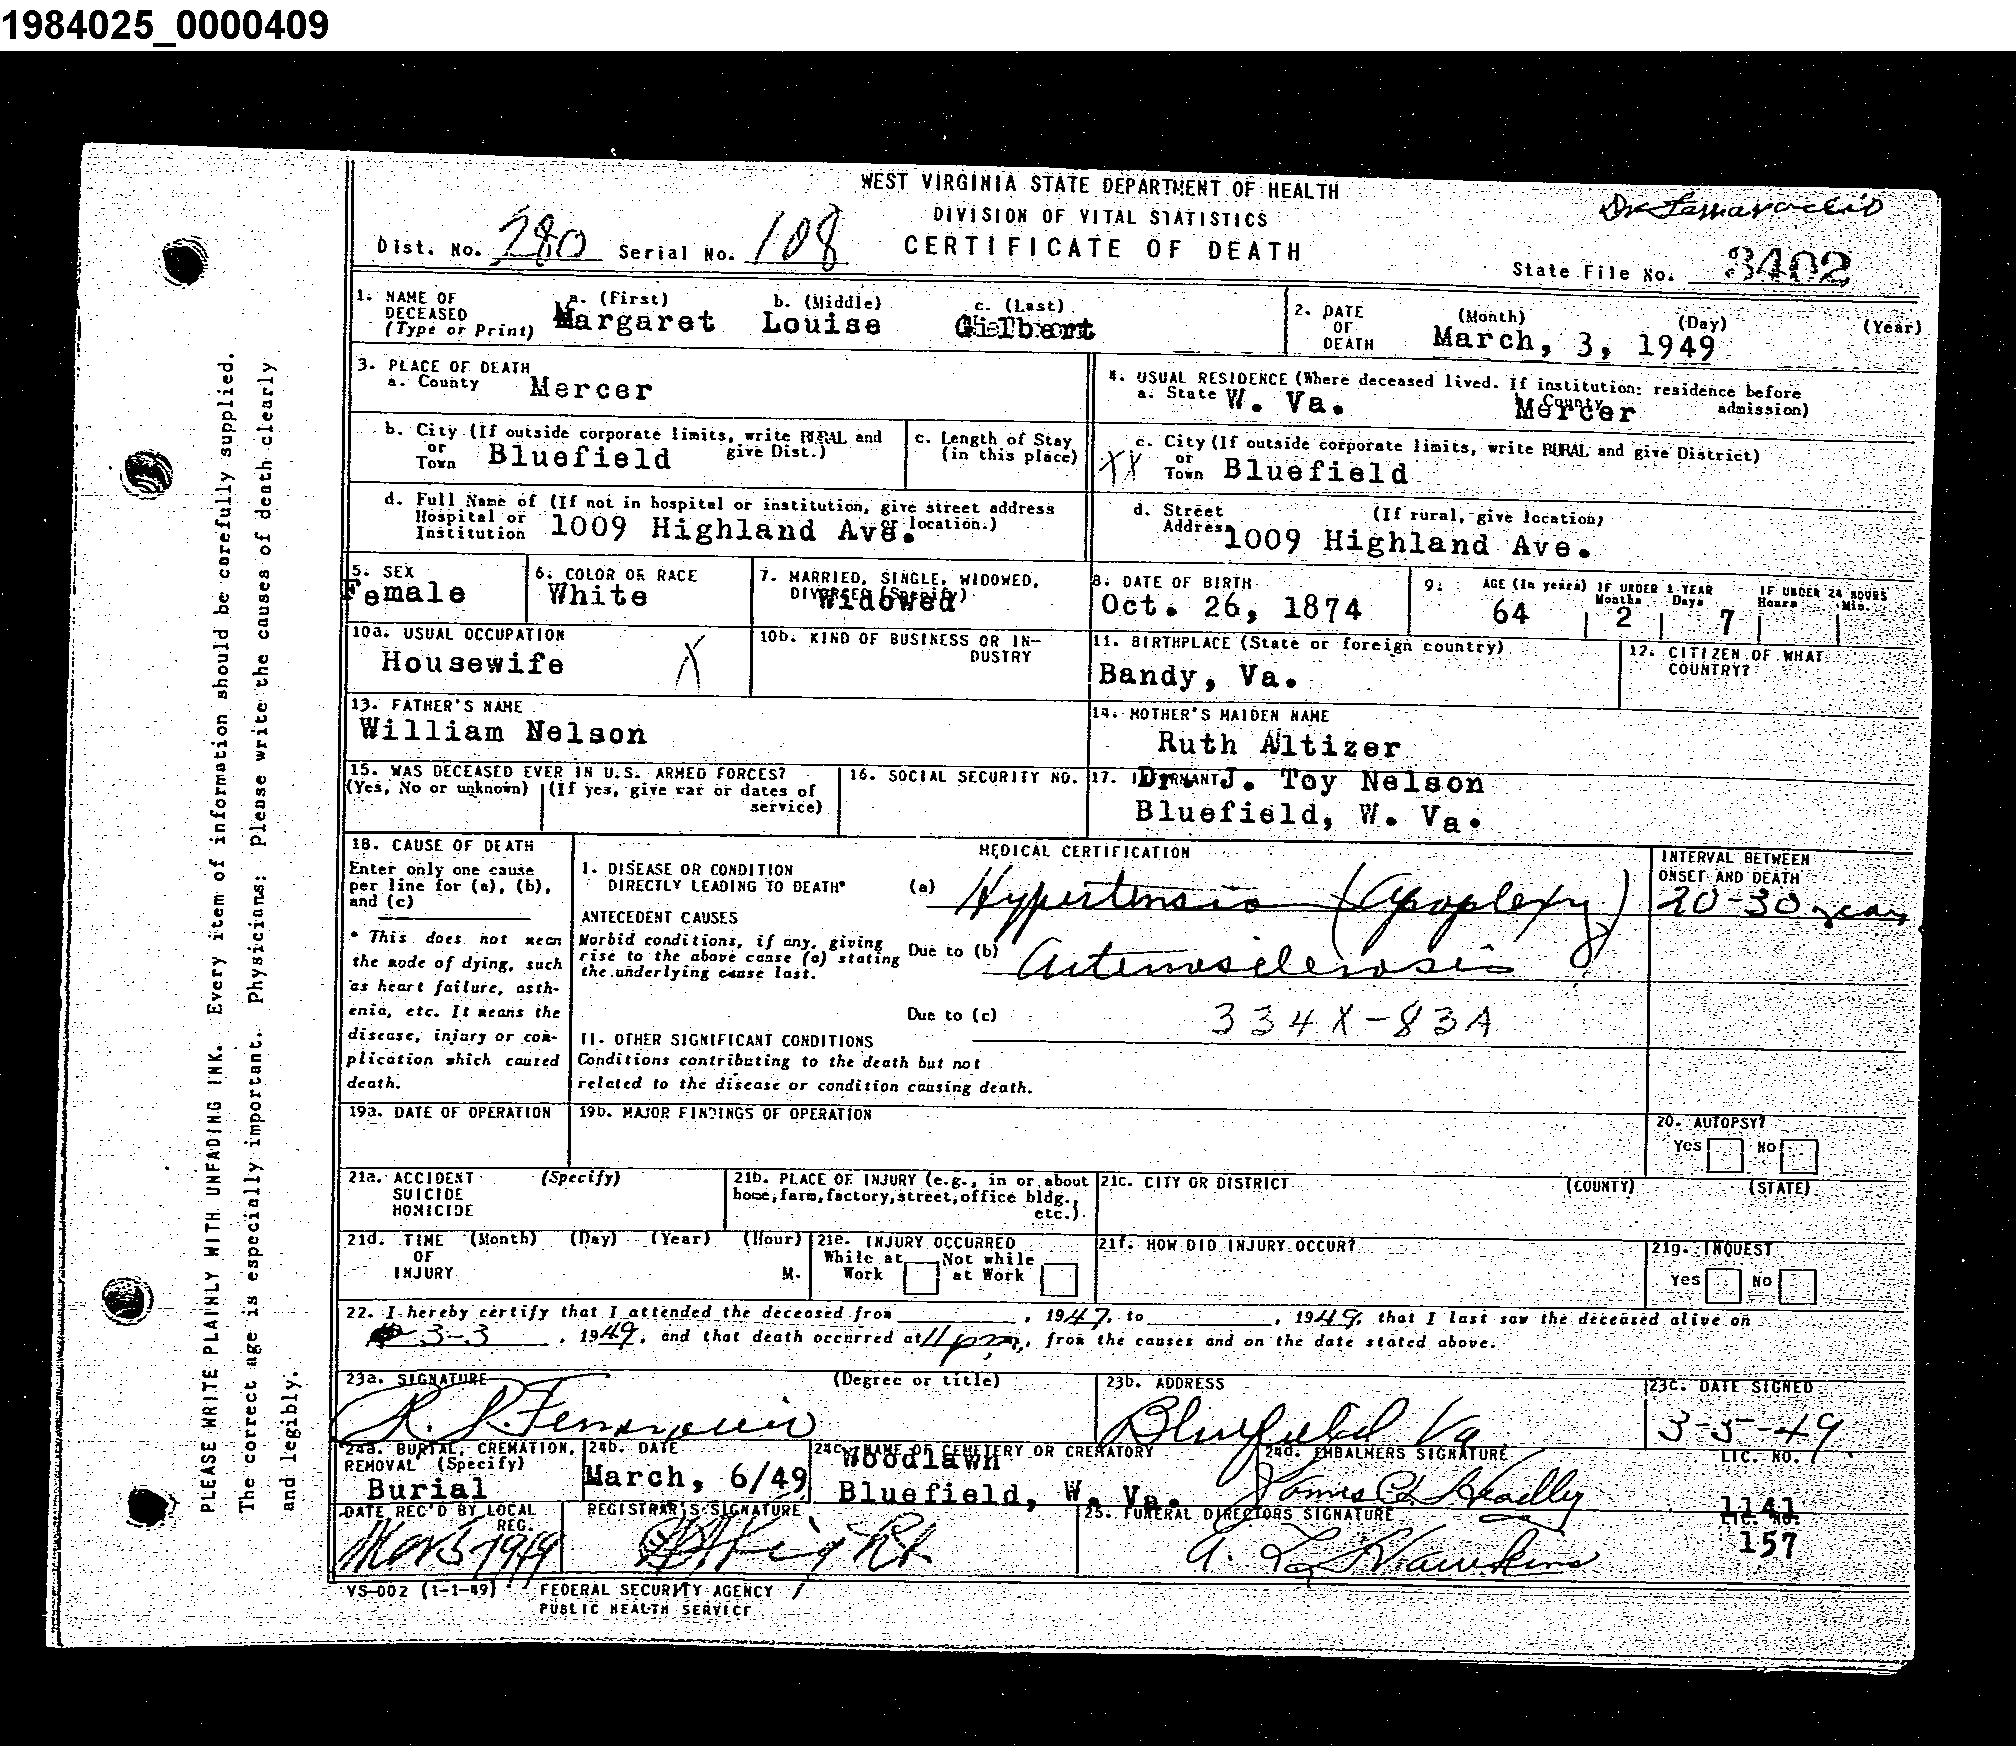 1984025_0000409
WEST VIRGINIA STATE DEPARTMENT OF HEALTH
DIVISION OF VITAL STATISTICS
CERTIFICATE OF DEATH
Dist. No. 280 Serial No. 108
State File No. 3402
1. NAME OF DECEASED (Type or Print)
a. (First) b. (Middle) c. (Last)
Margaret Louise Gilbert
2. DATE OF DEATH (Month) (Day) (Year)
March, 3, 1949
3. PLACE OF DEATH
a. County Mercer
4. USUAL RESIDENCE (Where deceased lived. If institution: residence before admission)
a. State W. Va. b. County Mercer
b. City (If outside corporate limits, write RURAL and give Dist.)
or Town Bluefield
c. Length of Stay (in this place)
c. City (If outside corporate limits, write RURAL and give District)
XX or Town Bluefield
d. Full Name of (If not in hospital or institution, give street address or location.)
Hospital or Institution 1009 Highland Ave.
d. Street Address (If rural, give location)
1009 Highland Ave.
5. SEX
Female
6. COLOR OR RACE
White
7. MARRIED, SINGLE, WIDOWED, DIVORCED (Specify)
Widowed
8. DATE OF BIRTH
Oct. 26, 1874
9. AGE (In years) IF UNDER 1 YEAR Months Days IF UNDER 24 HOURS Hours Min.
64 2 7
10a. USUAL OCCUPATION
Housewife X
10b. KIND OF BUSINESS OR INDUSTRY
11. BIRTHPLACE (State or foreign country)
Bandy, Va.
12. CITIZEN OF WHAT COUNTRY?
13. FATHER'S NAME
William Nelson
14. MOTHER'S MAIDEN NAME
Ruth Altizer
15. WAS DECEASED EVER IN U.S. ARMED FORCES?
(Yes, No or unknown) (If yes, give war or dates of service)
16. SOCIAL SECURITY NO.
17. INFORMANT Dr. J. Toy Nelson
Bluefield, W. Va.
18. CAUSE OF DEATH
Enter only one cause per line for (a), (b), and (c)
* This does not mean the mode of dying, such as heart failure, asthenia, etc. It means the disease, injury or complication which caused death.
MEDICAL CERTIFICATION
INTERVAL BETWEEN ONSET AND DEATH
I. DISEASE OR CONDITION DIRECTLY LEADING TO DEATH*
(a) Hypertensio (Apoplexy) 20-30 years
ANTECEDENT CAUSES
Morbid conditions, if any, giving rise to the above cause (a) stating the underlying cause last.
Due to (b) Arteriosclerosis
Due to (c) 334X-83A
II. OTHER SIGNIFICANT CONDITIONS
Conditions contributing to the death but not related to the disease or condition causing death.
19a. DATE OF OPERATION
19b. MAJOR FINDINGS OF OPERATION
20. AUTOPSY?
Yes No
21a. ACCIDENT SUICIDE HOMICIDE (Specify)
21b. PLACE OF INJURY (e.g., in or about home, farm, factory, street, office bldg., etc.)
21c. CITY OR DISTRICT (COUNTY) (STATE)
21d. TIME OF INJURY (Month) (Day) (Year) (Hour) M.
21e. INJURY OCCURRED
While at Work Not while at Work
21f. HOW DID INJURY OCCUR?
21g. INQUEST
Yes No
22. I hereby certify that I attended the deceased from , 1947, to , 1949, that I last saw the deceased alive on
3-3, 1949, and that death occurred at 11 pm, from the causes and on the date stated above.
23a. SIGNATURE (Degree or title)
23b. ADDRESS
Bluefield Va
23c. DATE SIGNED
3-5-49
24a. BURIAL, CREMATION, REMOVAL (Specify)
Burial
24b. DATE
March, 6/49
24c. NAME OF CEMETERY OR CREMATORY
Woodlawn
Bluefield, W. Va.
24d. EMBALMERS SIGNATURE LIC. NO.
1141
DATE REC'D BY LOCAL REG.
Mar 5 1949
REGISTRAR'S SIGNATURE
25. FUNERAL DIRECTORS SIGNATURE LIC. NO.
157
VS-002 (1-1-49) FEDERAL SECURITY AGENCY
PUBLIC HEALTH SERVICE
PLEASE WRITE PLAINLY WITH UNFADING INK. Every item of information should be carefully supplied.
The correct age is especially important. Physicians: Please write the causes of death clearly
and legibly.